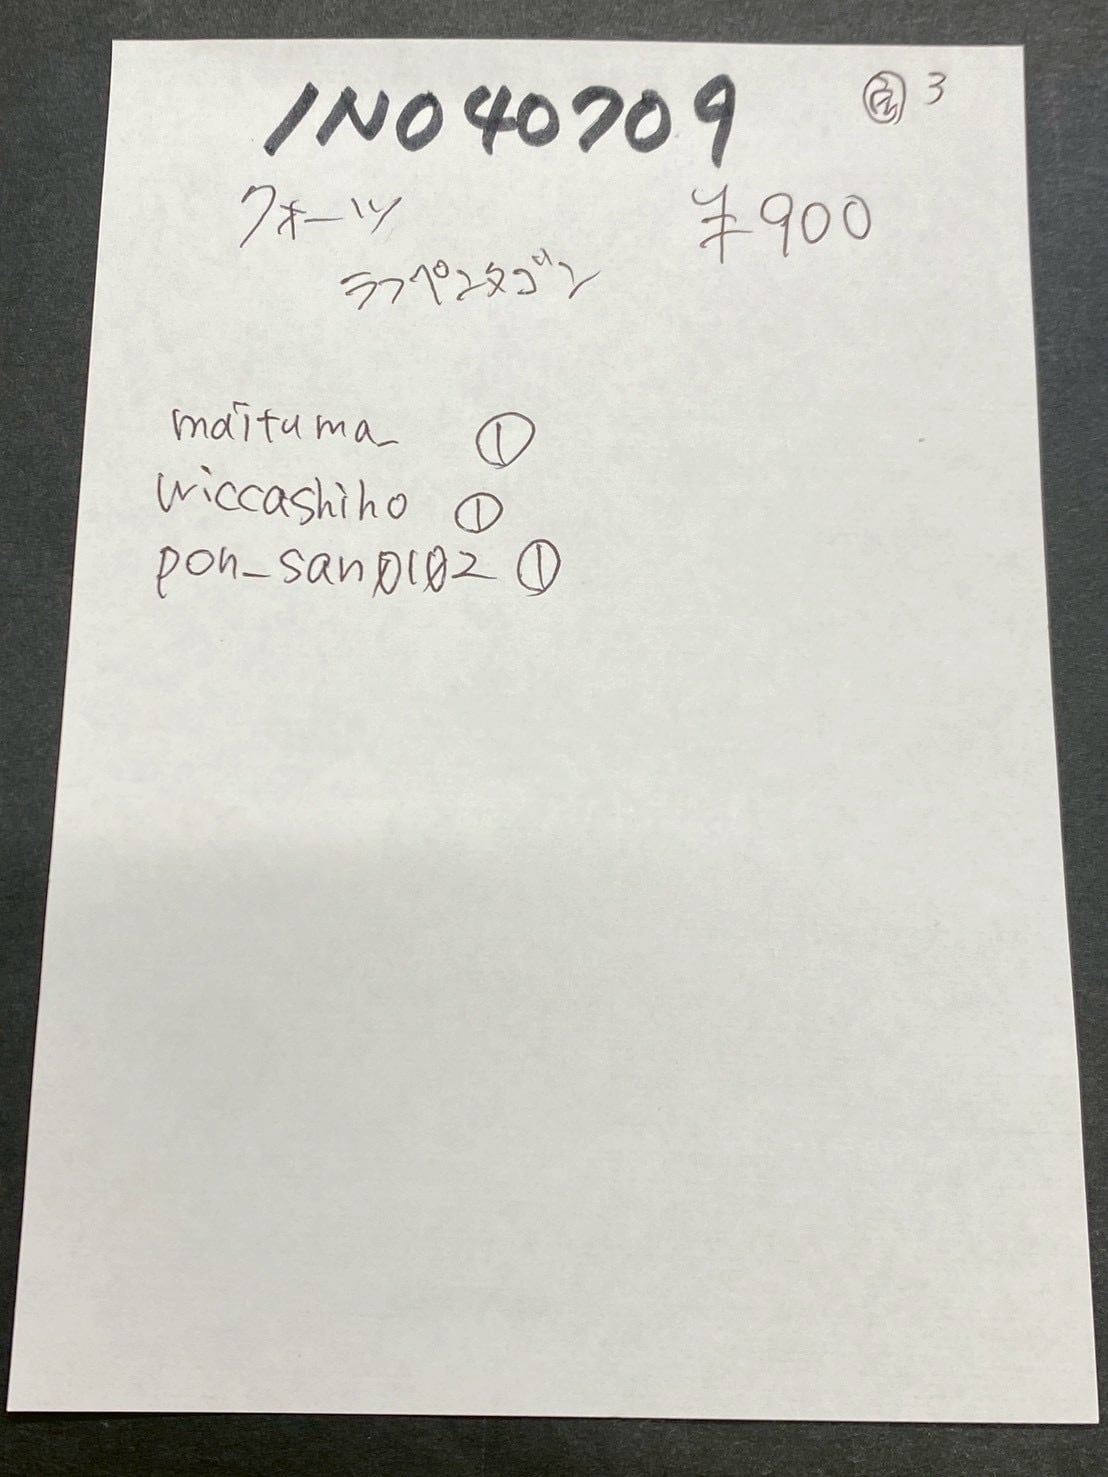 INO40709
3
クォーツ ¥900
ラフペンタゴン
maituma_ ①
wiccashiho ①
pon_san0102 ①